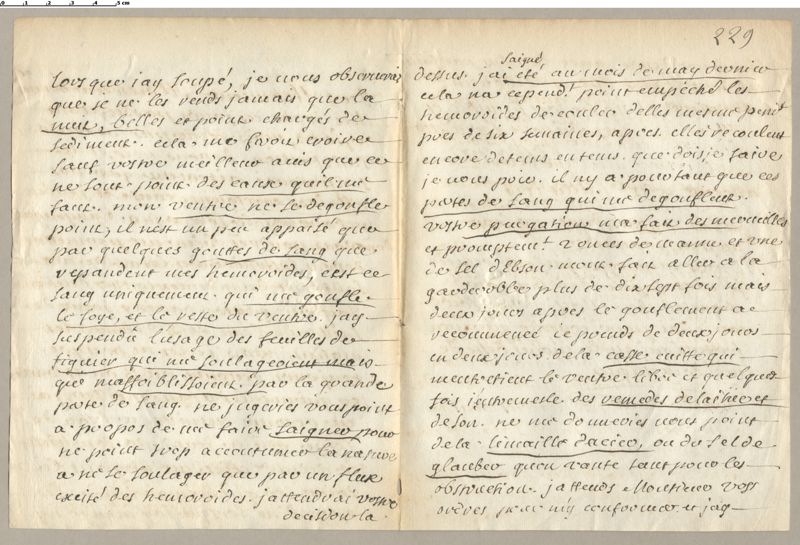 0 1 2 3 4 5 cm
229
lorsque jay soupé, je vous observerai
que je ne les rends jamais que la
nuit, belles et point chargés de
sediment. cela me feroit croire
sauf vostre meilleur avis que ce
ne sont point des eaux qu'il me
faut. mon ventre ne se degonfle
point, il n'est un peu appaisé que
par quelques gouttes de sang que
repandent mes hemoroides, c'est ce
sang uniquement qui me gonfle
le foye, et le reste du ventre. jay
suspendu l'usage des feuilles de
figuier qui me soulageoient mais
que maffoiblissoient par la grande
perte de sang. ne jugeries vous point
a propos de me faire saigner pour
ne point trop accoutumer la nature
a ne se soulager que par un flux
excité des hemoroides. j'attendrai vostre
decision la
saigné
dessus. j'ai été au mois de may dernier
cela na cepend.t point empeché les
hemoroides de couler delles mesme pend.t
pres de six semaines, apres elles recoulent
encore de tems en tems. que dois je faire
je vous prie. il ny a pourtant que ces
pertes de sang qui me degonflent.
vostre purgation ma fait des merveilles
et promptem.t 2 onces de manne et une
de sel d'Ebson mont fait aller a la
garderobbe plus de dix sept fois mais
deux jours apres le gonflement a
recommencé je prends de deux jours
en deux jours de la casse cuitte qui
mentretient le ventre libre et quelques
fois jentremesle des remedes de laittée et
de son. ne me donneries vous point
de la limaille dacier, ou du sel de
glauber quon vante tant pour les
obstruction. jattends Monsieur vos
ordres pour my conformer et jay